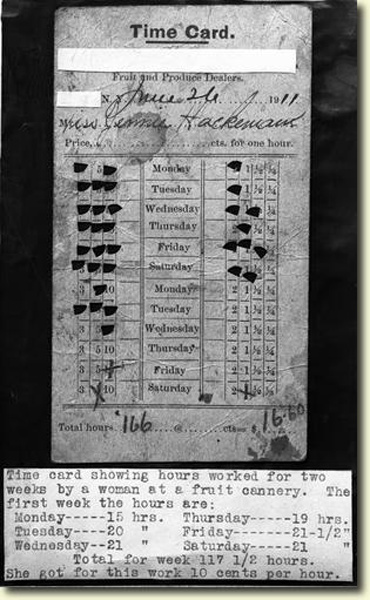 Time Card.
Fruit and Produce Dealers.
N. June 26 1911
Miss Jennie Hackemann
Price, cts. for one hour.
5 Monday 1 ½ ¼
Tuesday 1 ½ ¼
Wednesday ½ ¼
Thursday ½ ¼
Friday ¼
Saturday ½ ¼
3 10 Monday 2 1 ½ ¼
Tuesday 2 1 ½ ¼
3 5 Wednesday 2 1 ½ ¼
3 5 10 Thursday 2 1 ½ ¼
3 5 Friday 2 1 ½ ¼
3 10 Saturday 2 ½ ¼
Total hours 166 @ cts= $ 16.60
Time card showing hours worked for two
weeks by a woman at a fruit cannery. The
first week the hours are:
Monday-----15 hrs. Thursday-----19 hrs.
Tuesday----20 " Friday-------21-1/2"
Wednesday--21 " Saturday-----21 "
Total for week 117 1/2 hours.
She got for this work 10 cents per hour.